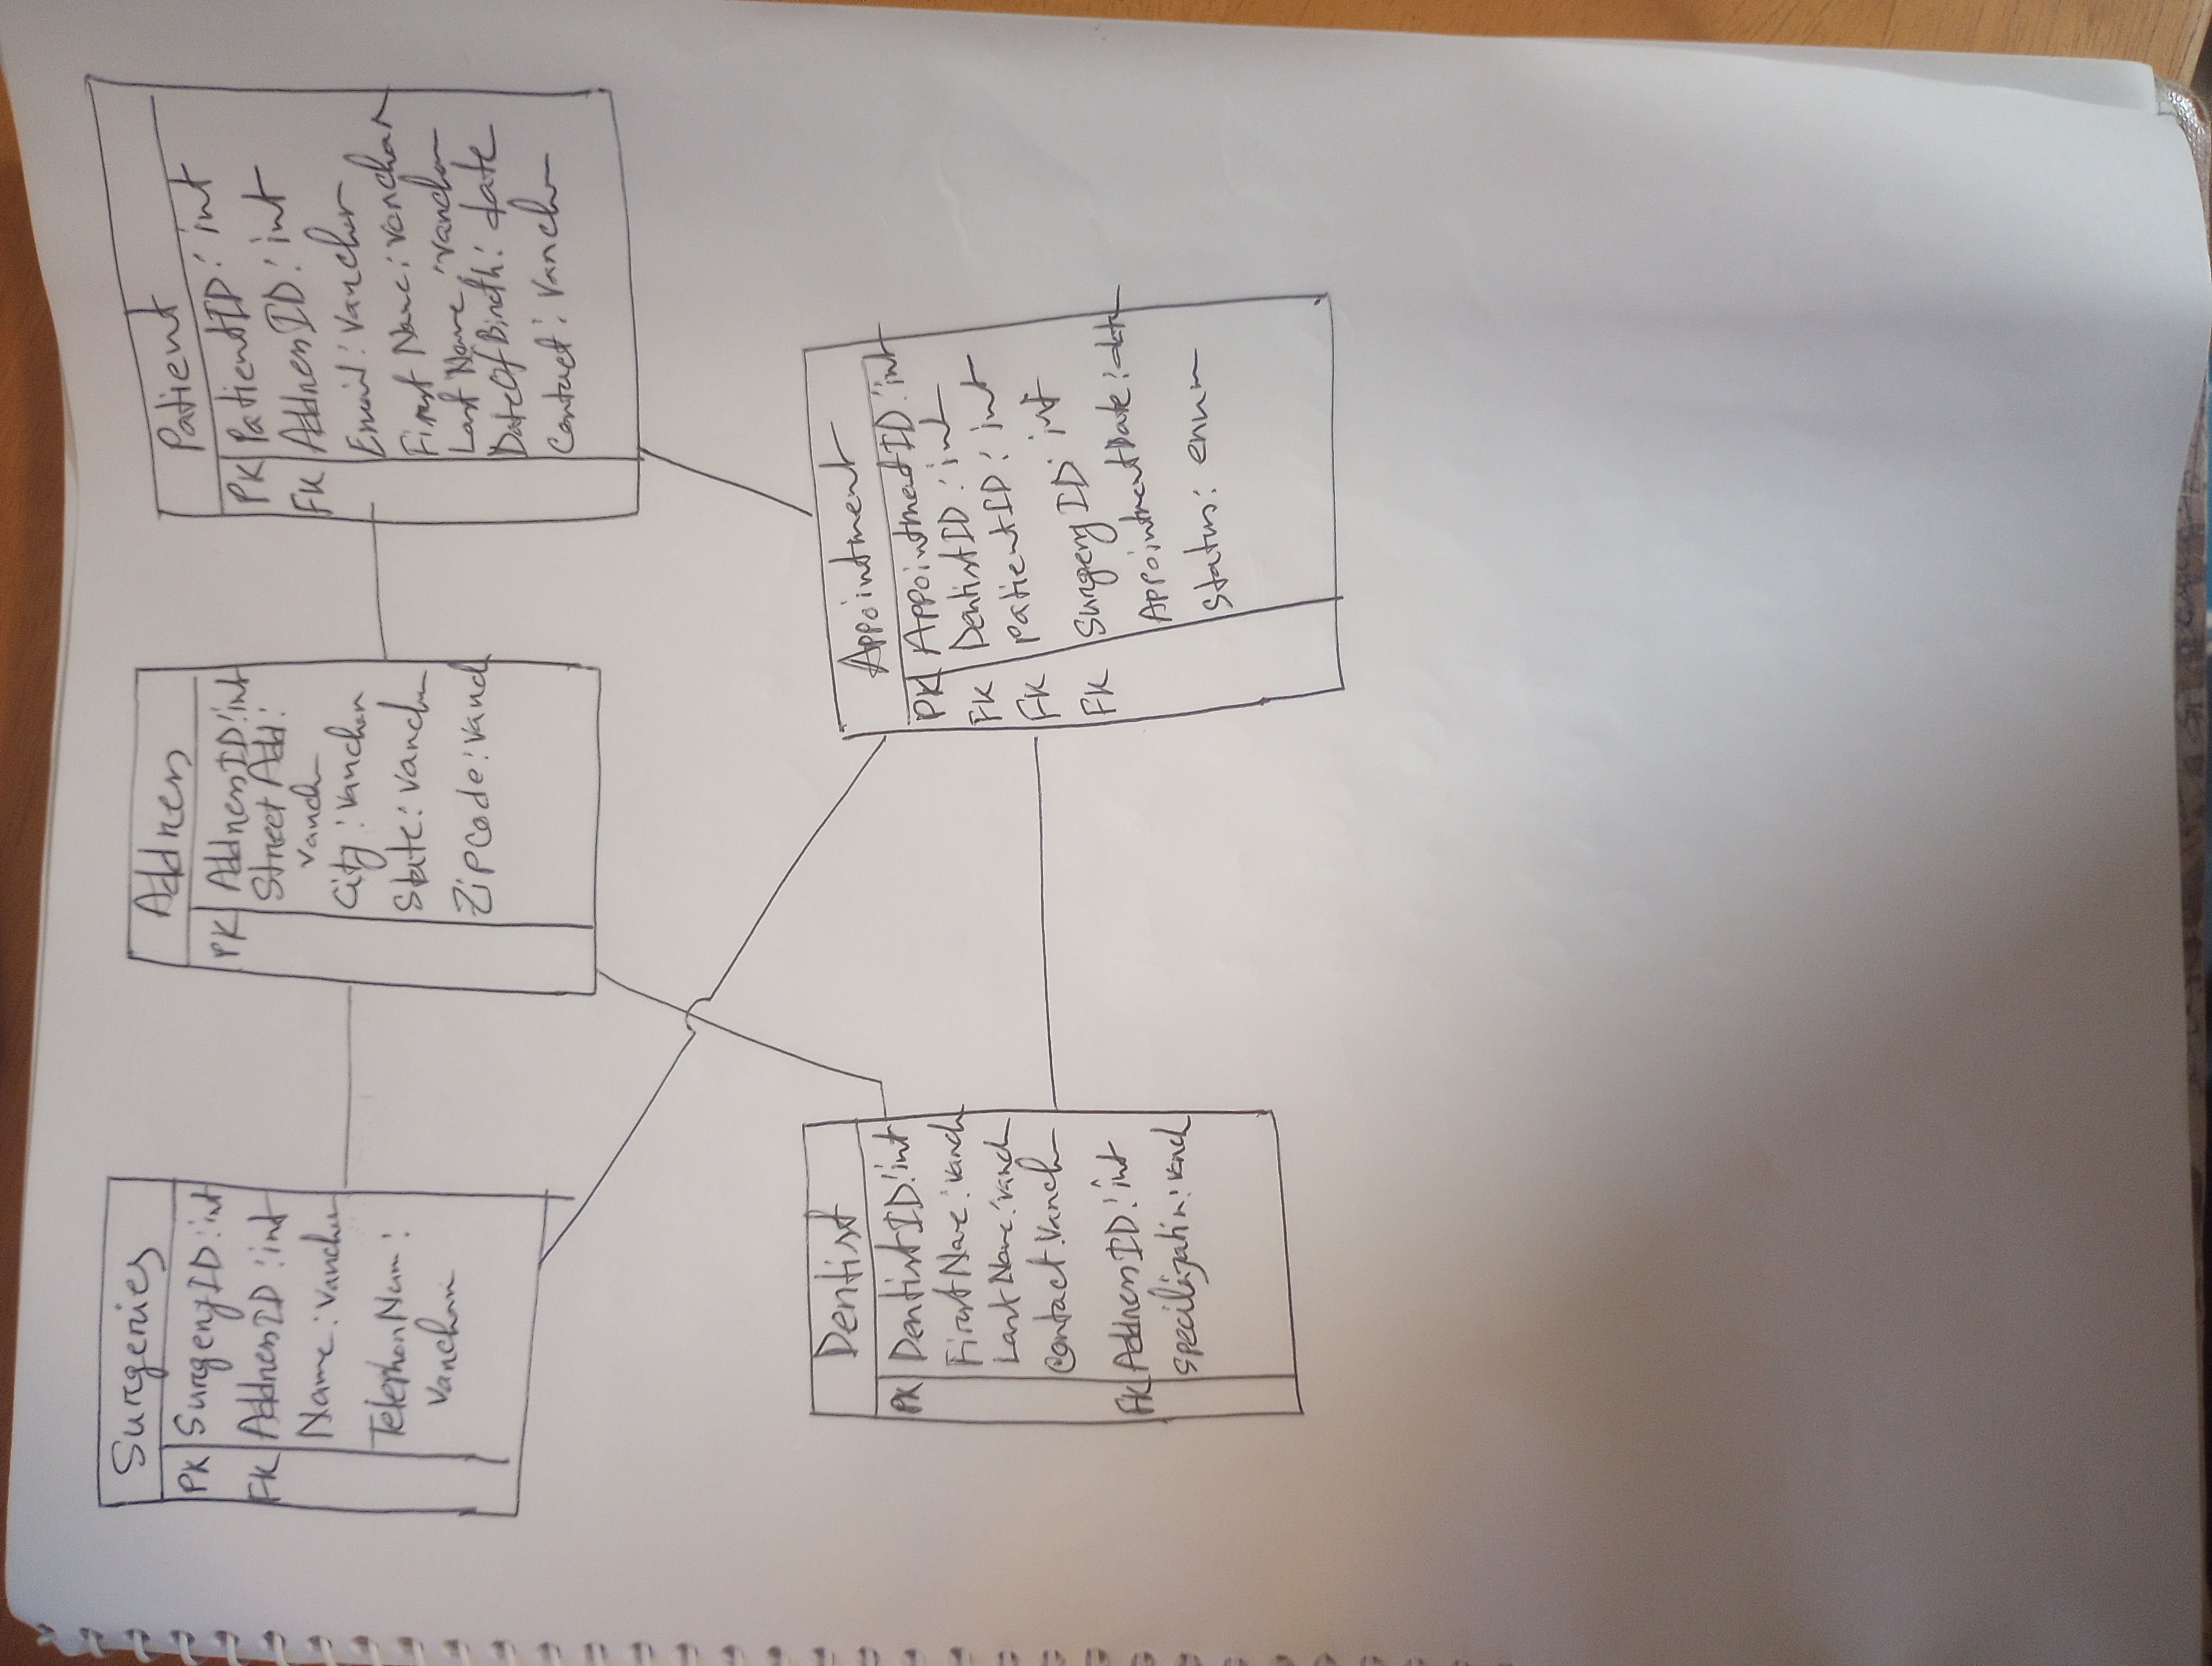 Surgeries
PK SurgeryID: int
FK AddressID: int
Name: Varchar
TelephonNum:
Varchar
Address
PK AddressID: int
Street Add:
Varchar
City: Varchar
State: Varchar
ZipCode: Varch
Patient
PK PatientID: int
FK AddressID: int
Email: Varchar
First Name: varchar
Last Name: varchar
DateOfBirth: date
Contact: Varchar
Dentist
PK DentistID: int
FirstName: varch
LastName: varch
Contact: Varch
FK AddressID: int
Specilizatin: varch
Appointment
PK AppointmentID: int
FK DentistID: int
FK PatientID: int
FK SurgeryID: int
AppointmentDate: date
Status: enum